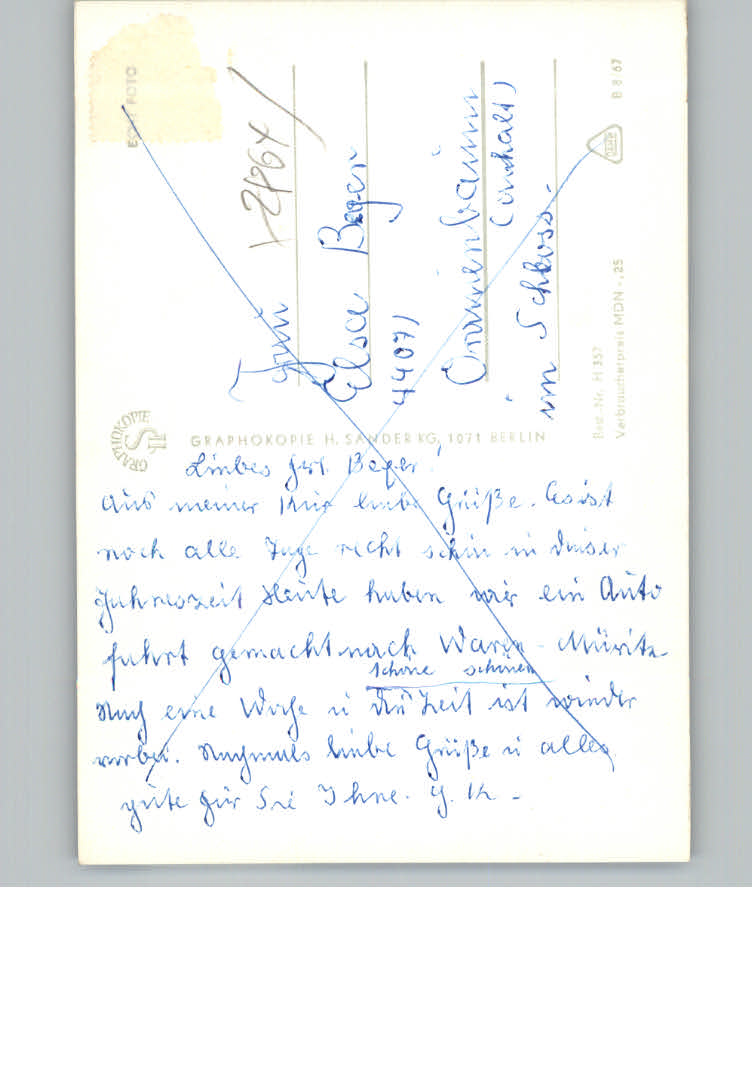 ECHT FOTO
12164
Frau
Elsa Beyer
4407)
Oranienbaum
(Anhalt)
im Schloss.
B 8/67
Best.-Nr. H 357
Verbraucherpreis MDN -,25
GRAPHOKOPIE
GRAPHOKOPIE H. SANDER KG, 1071 BERLIN
Liebes Frl. Beyer!
Aus meiner Kur liebe Grüße. Es ist
noch alle Tage recht schön in dieser
Jahreszeit Heute haben wir ein Auto
fahrt gemacht nach Waren - Müritz
schöne schönen
Noch eine Woche u die Zeit ist wieder
vorbei. Nochmals liebe Grüße u alles
gute für Sie Ihre.